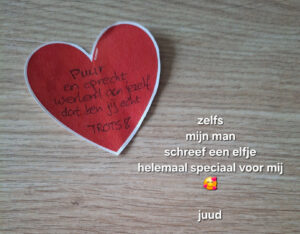 Puur
en oprecht
werken aan jezelf
dat ben jij echt
TROTS!
zelfs
mijn man
schreef een elfje
helemaal speciaal voor mij
🥰
juud